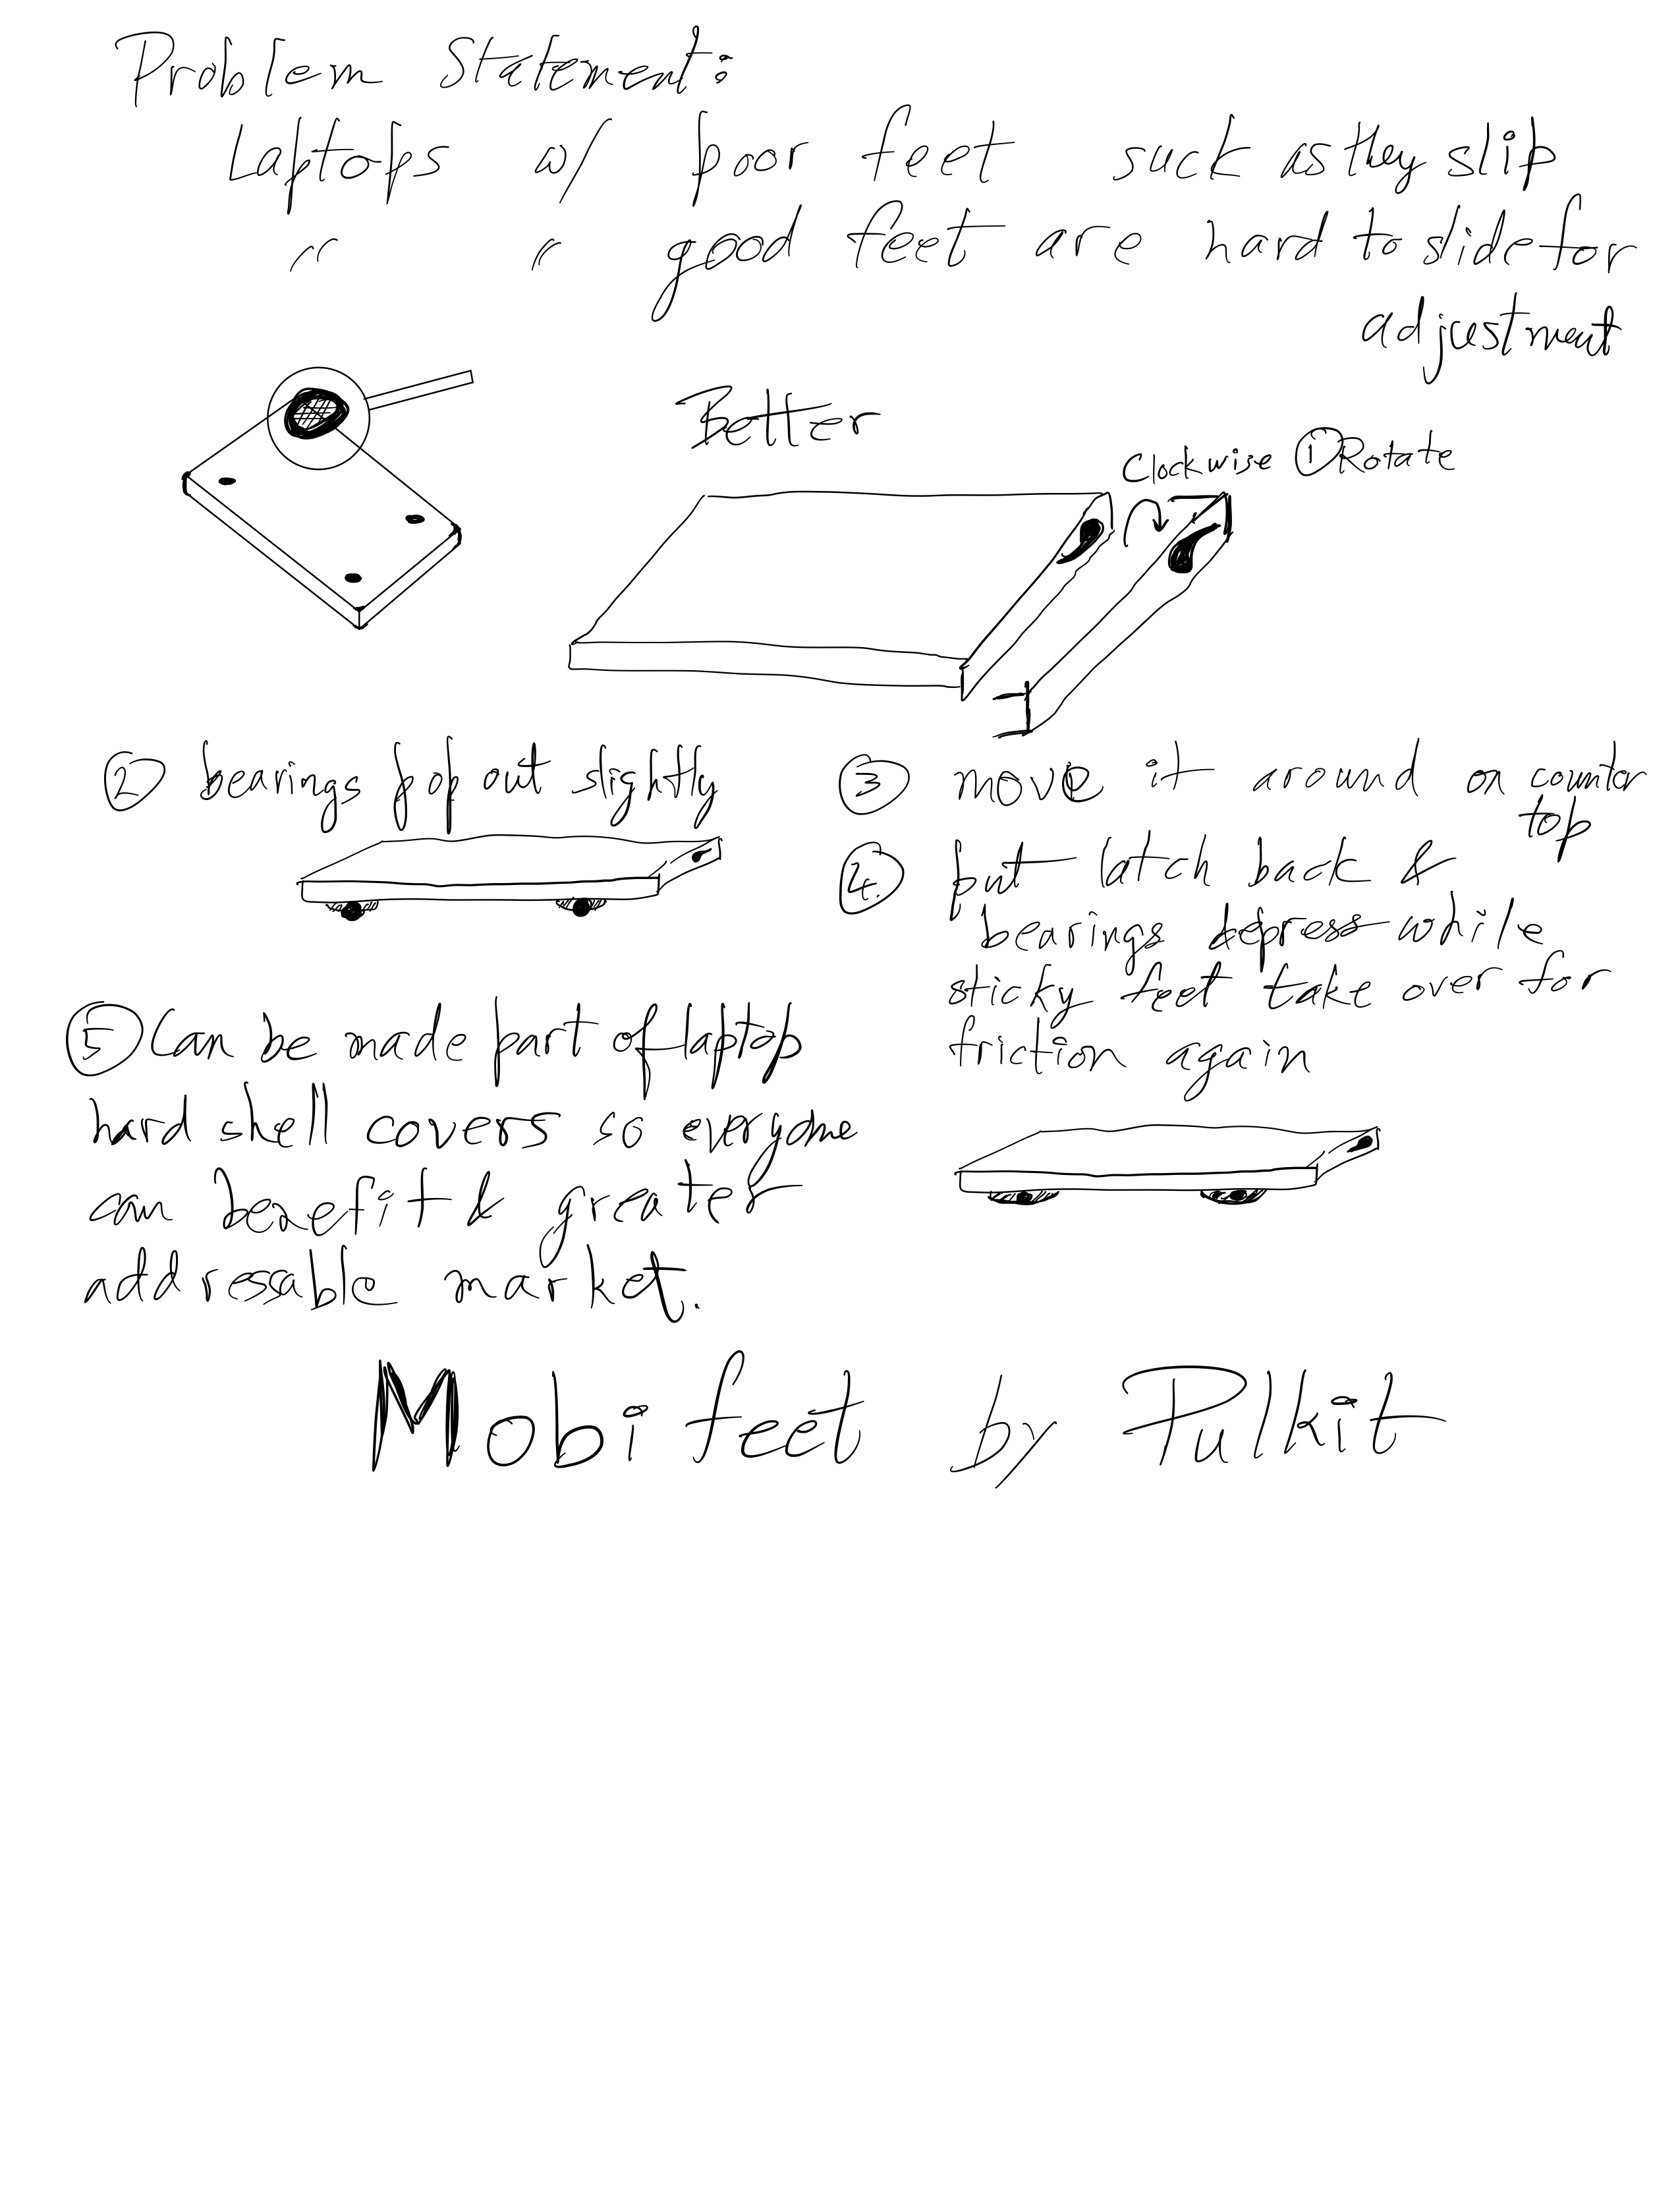 Problem Statement:
Laptops w/ poor feet suck as they slip
" " good feet are hard to slide for
adjustment
Better
Clockwise ① Rotate
② bearings pop out slightly
③ move it around on counter
top
④ put latch back &
bearings depress while
sticky feet take over for
friction again
⑤ Can be made part of laptop
hard shell covers so everyone
can benefit & greater
addressable market.
Mobifeet by Pulkit